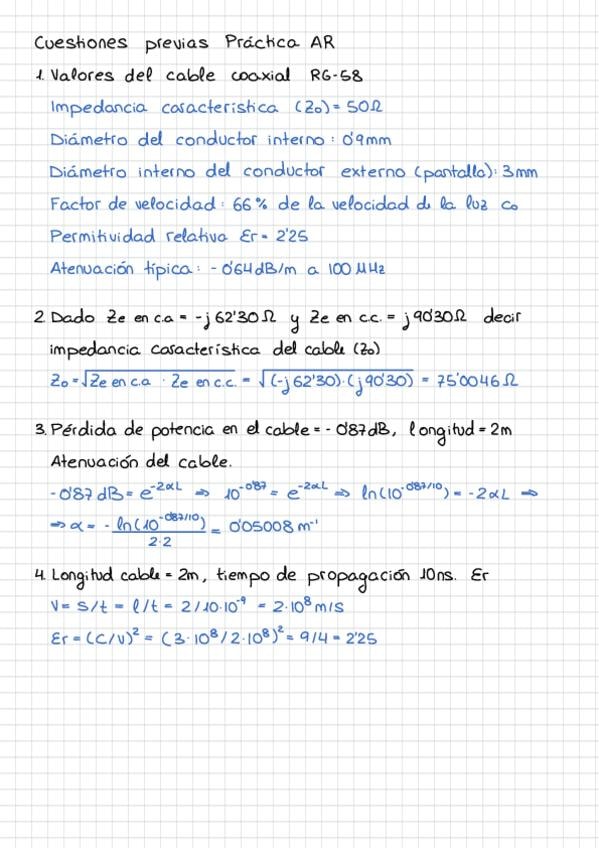 Cuestiones previas Práctica AR
1. Valores del cable coaxial RG-58
Impedancia característica (Z₀) = 50Ω
Diámetro del conductor interno: 0'9mm
Diámetro interno del conductor externo (pantalla): 3mm
Factor de velocidad: 66% de la velocidad de la luz c₀
Permitividad relativa Er = 2'25
Atenuación típica: -0'64dB/m a 100 MHz
2. Dado Ze en c.a = -j62'30Ω y Ze en c.c. = j90'30Ω decir
impedancia característica del cable (Z₀)
Z₀ = √(Ze en c.a · Ze en c.c.) = √((-j62'30)·(j90'30)) = 75'0046Ω
3. Pérdida de potencia en el cable = -0'87dB, longitud = 2m
Atenuación del cable.
-0'87 dB = e^(-2αL) ⇒ 10^(-0'87) = e^(-2αL) ⇒ ln(10^(-0'87/10)) = -2αL ⇒
⇒ α = - ln(10^(-0'87/10)) / 2·2 = 0'05008 m⁻¹
4. Longitud cable = 2m, tiempo de propagación 10ns. Er
V = s/t = l/t = 2/10·10⁻⁹ = 2·10⁸ m/s
Er = (c/v)² = (3·10⁸/2·10⁸)² = 9/4 = 2'25